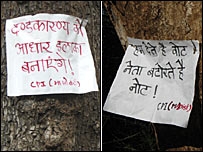 दण्डकारण्य को
आधार इलाका
बनाएंगे!
CPI (maoist)
हम देते हैं वोट
नेता बटोरते हैं
नोट!
CPI (maoist)